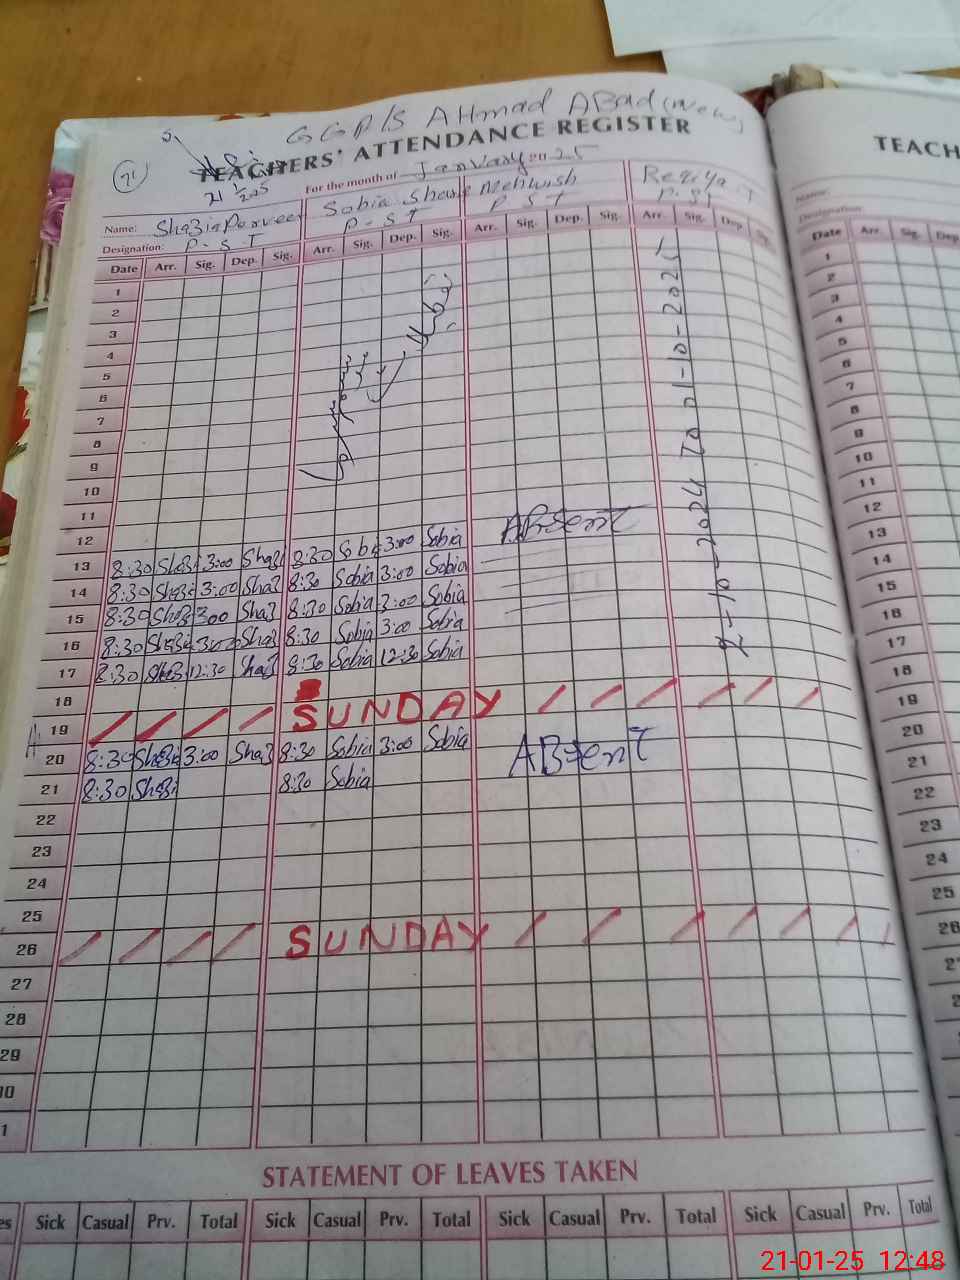 GGP/S AHmad ABad (New)
TEACHERS' ATTENDANCE REGISTER
21
21 1/2025
For the month of January 2025
Name: Shazia Perveen Sobia Mehwish Reqiya
Designation: P-S-T P-S-T P S-T P-ST
Date Arr. Sig. Dep. Sig. Arr. Sig. Dep. Sig. Arr. Sig. Dep. Sig. Arr. Sig. Dep. Sig.
1
2
3
4
5
6
7
8
9
10
11
12
13 8:30 Shazi 3:00 Shazi 8:30 Sobia 3:00 Sobia ABsenT
14 8:30 Shazi 3:00 Shaz 8:30 Sobia 3:00 Sobia
15 8:30 Shazi 3:00 Shaz 8:30 Sobia 3:00 Sobia
16 8:30 Shazi 3:00 Shaz 8:30 Sobia 3:00 Sobia
17 8:30 Shazi 12:30 Shaz 8:30 Sobia 12:30 Sobia
2-10-2024 To 01-10-2025
18
19 SUNDAY
20 8:30 Shazi 3:00 Shaz 8:30 Sobia 3:00 Sobia ABsenT
21 8:30 Shazi 8:30 Sobia
22
23
24
25
26 SUNDAY
27
28
29
30
1
STATEMENT OF LEAVES TAKEN
es Sick Casual Prv. Total Sick Casual Prv. Total Sick Casual Prv. Total Sick Casual Prv. Total
TEACH
Name:
Designation
Date Arr. Sig. Dep
1
2
3
4
5
6
7
8
9
10
11
12
13
14
15
16
17
18
19
20
21
22
23
24
25
26
21-01-25 12:48